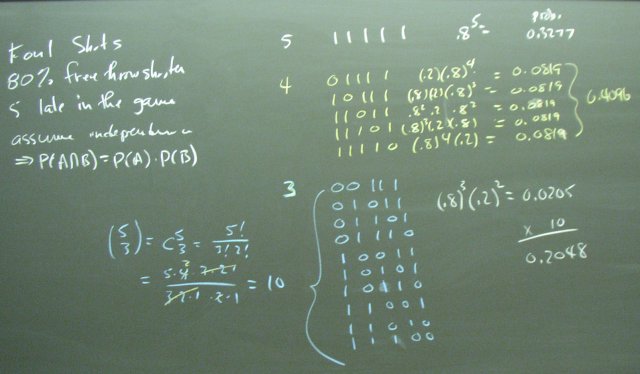 Foul Shots
80% free throw shooter
5 late in the game
assume independence
⇒ P(A∩B) = P(A) · P(B)
prob.
5 1 1 1 1 1 .8^5 = 0.3277
4 0 1 1 1 1 (.2)(.8)^4 = 0.0819
1 0 1 1 1 (.8)(.2)(.8)^3 = 0.0819
1 1 0 1 1 .8^2 .2 .8^2 = 0.0819
1 1 1 0 1 (.8)^3(.2)(.8) = 0.0819
1 1 1 1 0 (.8)^4(.2) = 0.0819
0.4096
3 0 0 1 1 1
0 1 0 1 1
0 1 1 0 1
0 1 1 1 0
1 0 0 1 1
1 0 1 0 1
1 0 1 1 0
1 1 0 0 1
1 1 0 1 0
1 1 1 0 0
(.8)^3(.2)^2 = 0.0205
x 10
0.2048
(5 3) = C^5_3 = 5!/3!2!
= 5·4·3·2·1/3·2·1·2·1 = 10